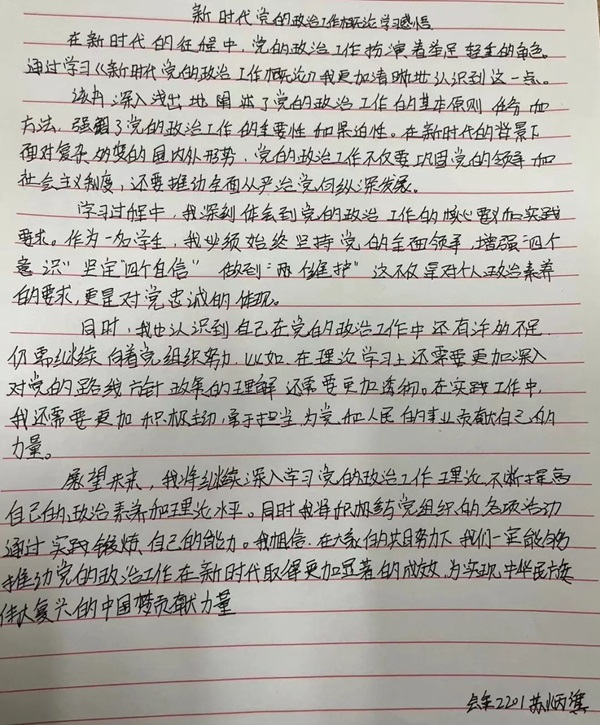 新时代党的政治工作概论学习感悟
在新时代的征程中，党的政治工作扮演着举足轻重的角色。
通过学习《新时代党的政治工作概论》我更加清晰地认识到这一点。
该书深入浅出地阐述了党的政治工作的基本原则 任务和
方法，强调了党的政治工作的重要性和紧迫性。在新时代的背景下
面对复杂多变的国内外形势，党的政治工作不仅要巩固党的领导和
社会主义制度，还要推动全面从严治党向纵深发展。
学习过程中，我深刻体会到党的政治工作的核心要义和实践
要求。作为一名学生，我必须始终坚持党的全面领导，增强"四个
意识"坚定"四个自信" 做到"两个维护"这不仅是对个人政治素养
的要求，更是对党忠诚的体现。
同时，我也认识到自己在党的政治工作中还有许多不足
仍需继续向着党组织努力，比如在理论学习上还需要更加深入
对党的路线方针政策的理解还需要更加透彻。在实践工作中，
我还需要更加积极主动，勇于担当，为党和人民的事业贡献自己的
力量。
展望未来，我将继续深入学习党的政治工作理论，不断提高
自己的政治素养和理论水平。同时我将积极参与党组织的各项活动
通过实践锻炼自己的能力。我相信，在大家的共同努力下我们一定能够
推动党的政治工作在新时代取得更加显著的成效，为实现中华民族
伟大复兴的中国梦贡献力量
2201苏炳